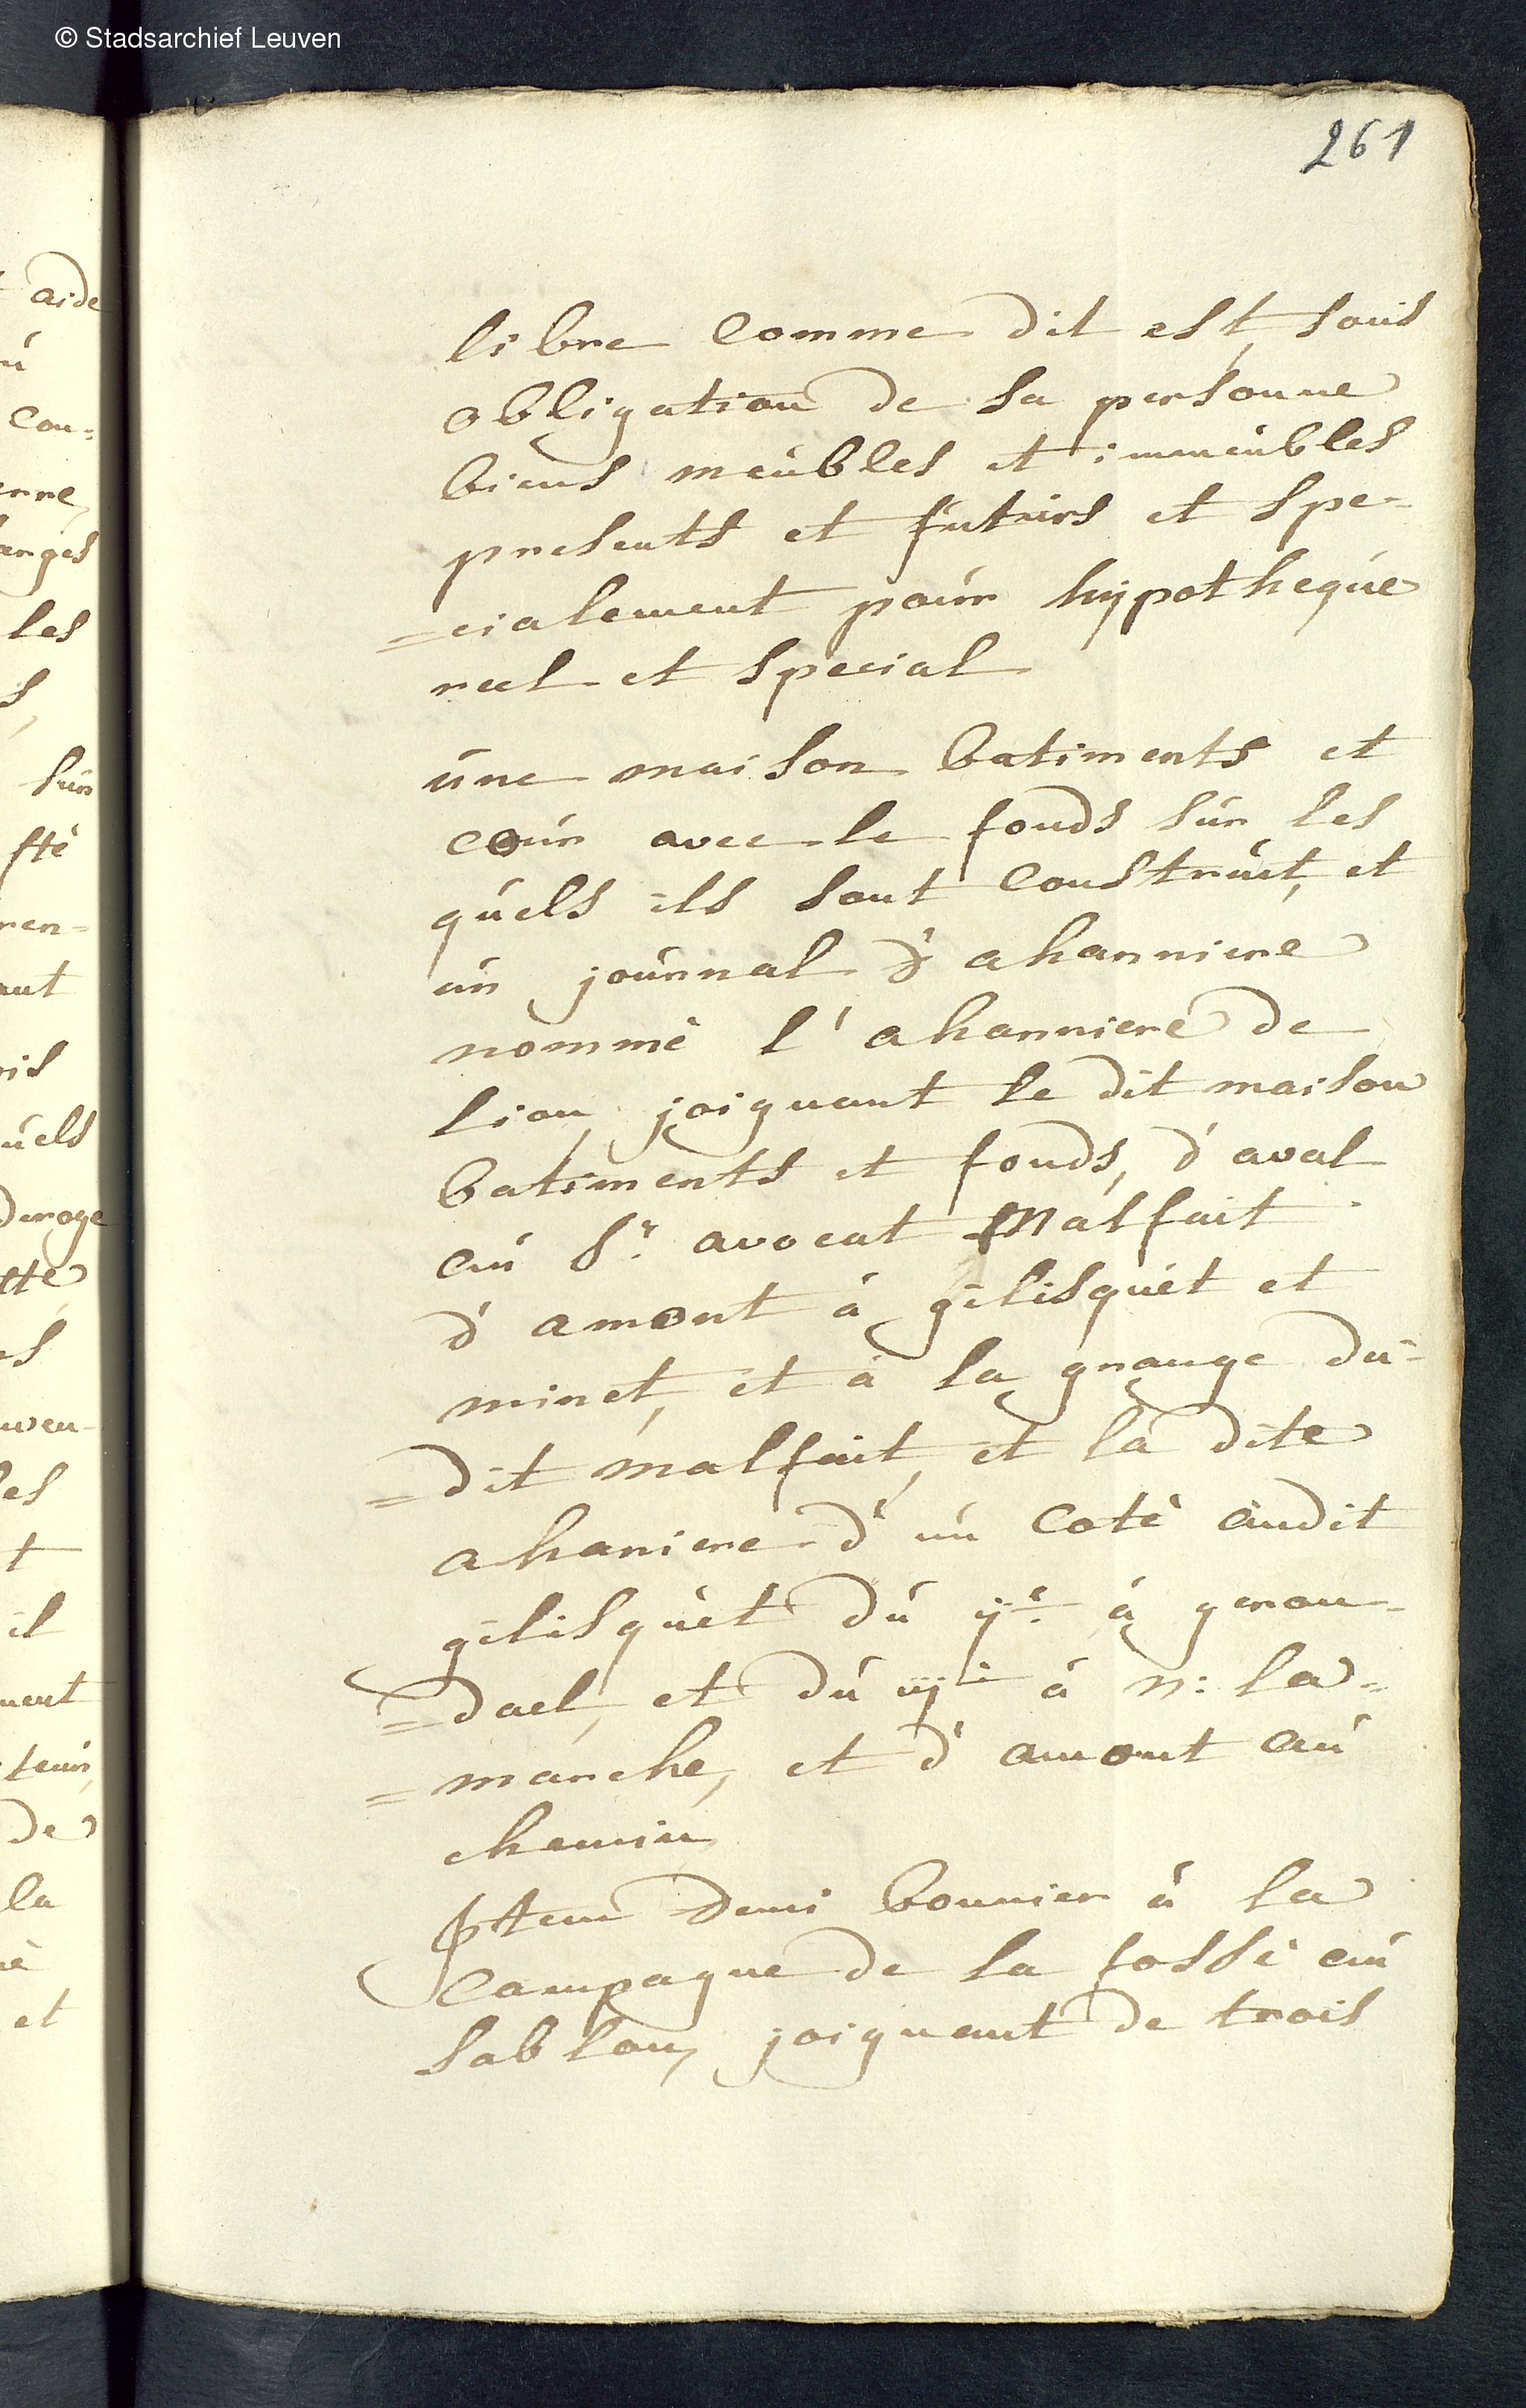 © Stadsarchief Leuven
261
libre comme dit est, sous
obligation de sa personne
biens meubles et immeubles
presents et futurs et spe-
=cialement pour hypotheque
reel et special
une maison batiments et
cour avec le fonds sur les
quels ils sont construit, et
un journal d'ahanniere
nommé l'ahanniere de
lion, joignant le dit maison
batiments et fonds, d'aval
au Sr. avocat Malfait
d'amont à gilisquet et
minet, et à la grange du-
=dit malfait, et la dite
ahaniere d'un coté audit
gilisquet du ije. à geron-
=dael, et du iije à n: la=
=marche, et d'amont au
chemin
Item demi bonnier à la
campagne de la fosse au
sablon, joignant de trois